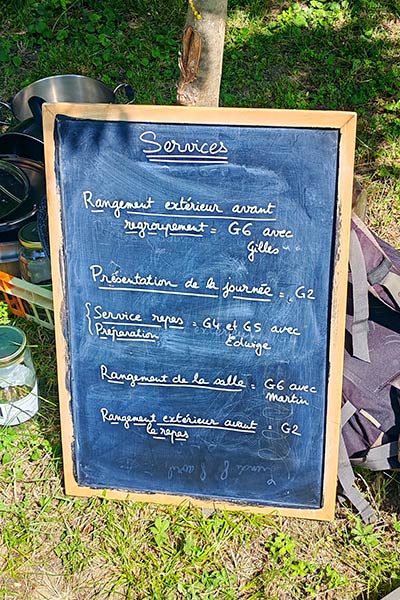 Services
Rangement extérieur avant
regroupement = G6 avec
Gilles
Présentation de la journée = G2
Service repas = G4 et G5 avec
Préparation Edwige
Rangement de la salle = G6 avec
Martin
Rangement extérieur avant = G2
le repas